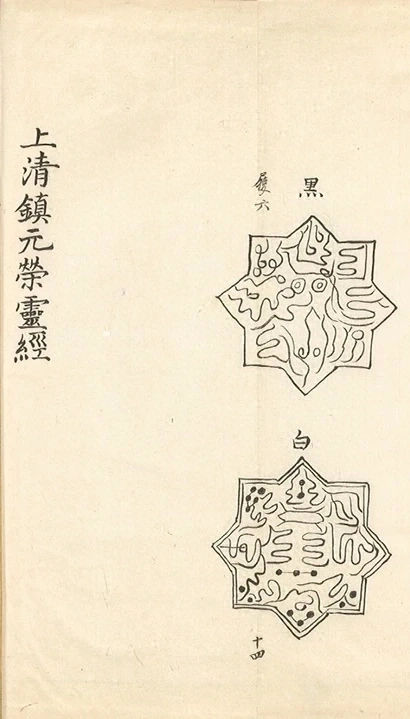 黑
履六
白
十四
上清鎮元榮靈經